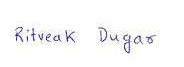 Ritveak Dugar